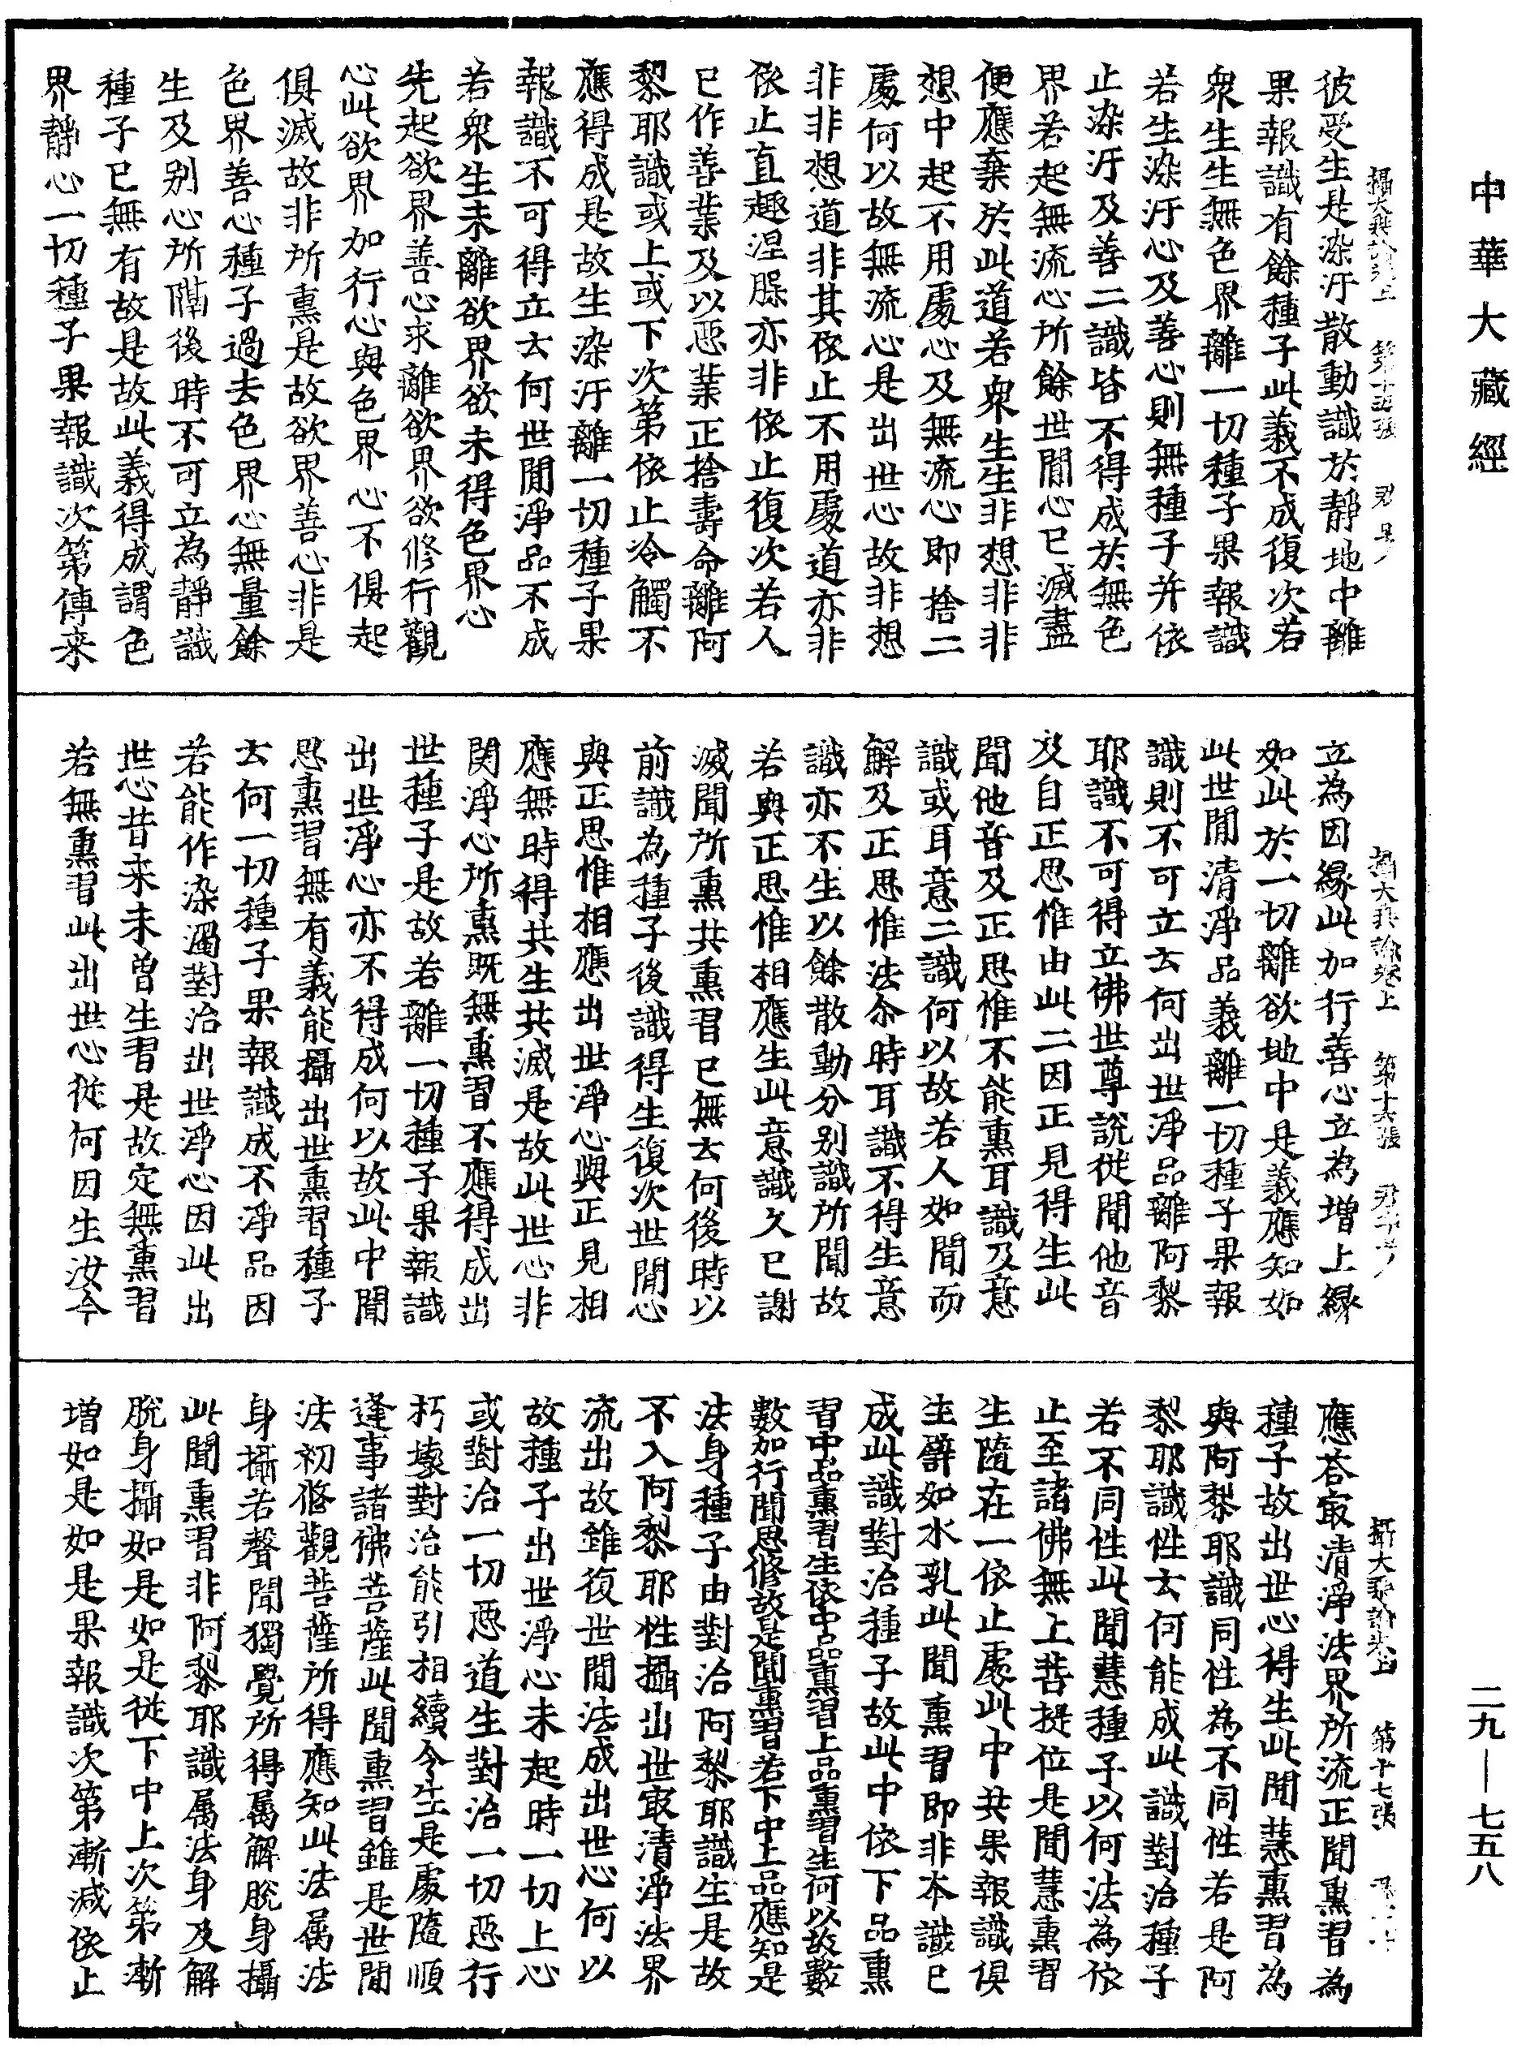 中華大藏經
二九—七五八
攝大乘論卷上 第十五張
彼受生是染汙散動識於靜地中離
果報識有餘種子此義不成復次若
衆生生無色界離一切種子果報識
若生染汙心及善心則無種子并依
止染汙及善二識皆不得成於無色
界若起無流心所餘世閒心已滅盡
便應棄於此道若衆生生非想非非
想中起不用處心及無流心即捨二
處何以故無流心是出世心故非想
非非想道非其依止不用處道亦非
依止直趣涅槃亦非依止復次若人
已作善業及以惡業正捨壽命離阿
黎耶識或上或下次第依止冷觸不
應得成是故生染汙離一切種子果
報識不可得立云何世閒淨品不成
若衆生未離欲界欲未得色界心
先起欲界善心求離欲界欲修行觀
心此欲界加行心與色界心不俱起
俱滅故非所熏是故欲界善心非是
色界善心種子過去色界心無量餘
生及別心所隔後時不可立為靜識
種子已無有故是故此義得成謂色
界靜心一切種子果報識次第傳來
攝大乘論卷上 第十六張
立為因緣此加行善心立為增上緣
如此於一切離欲地中是義應知如
此世閒清淨品義離一切種子果報
識則不可立云何出世淨品離阿黎
耶識不可得立佛世尊說從聞他音
及自正思惟由此二因正見得生此
聞他音及正思惟不能熏耳識及意
識或耳意二識何以故若人如聞而
解及正思惟法尒時耳識不得生意
識亦不生以餘散動分別識所聞故
若與正思惟相應生此意識久已謝
滅聞所熏共熏習已無云何後時以
前識為種子後識得生復次世閒心
與正思惟相應出世淨心與正見相
應無時得共生共滅是故此世心非
関淨心所熏既無熏習不應得成出
世種子是故若離一切種子果報識
出世淨心亦不得成何以故此中聞
思熏習無有義能攝出世熏習種子
云何一切種子果報識成不淨品因
若能作染濁對治出世淨心因此出
世心昔来未曾生習是故定無熏習
若無熏習此出世心從何因生汝今
攝大乘論卷上 第十七張
應荅㝡清淨法界所流正聞熏習為
種子故出世心得生此聞慧熏習為
與阿黎耶識同性為不同性若是阿
黎耶識性云何能成此識對治種子
若不同性此聞慧種子以何法為依
止至諸佛無上菩提位是聞慧熏習
生隨在一依止處此中共果報識俱
生譬如水乳此聞熏習即非本識已
成此識對治種子故此中依下品熏
習中品熏習生依中品熏習上品熏習生何以故數
數加行聞思修故是聞熏習若下中上品應知是
法身種子由對治阿黎耶識生是故
不入阿黎耶性攝出世㝡清淨法界
流出故雖復世閒法成出世心何以
故種子出世淨心未起時一切上心
或對治一切惡道生對治一切惡行
朽壞對治能引相續令生是處隨順
逢事諸佛菩薩此聞熏習雖是世閒
法初修觀菩薩所得應知此法屬法
身攝若聲聞獨覺所得屬解脫身攝
此聞熏習非阿黎耶識屬法身及解
脫身攝如是如是從下中上次第漸
增如是如是果報識次第漸減依止